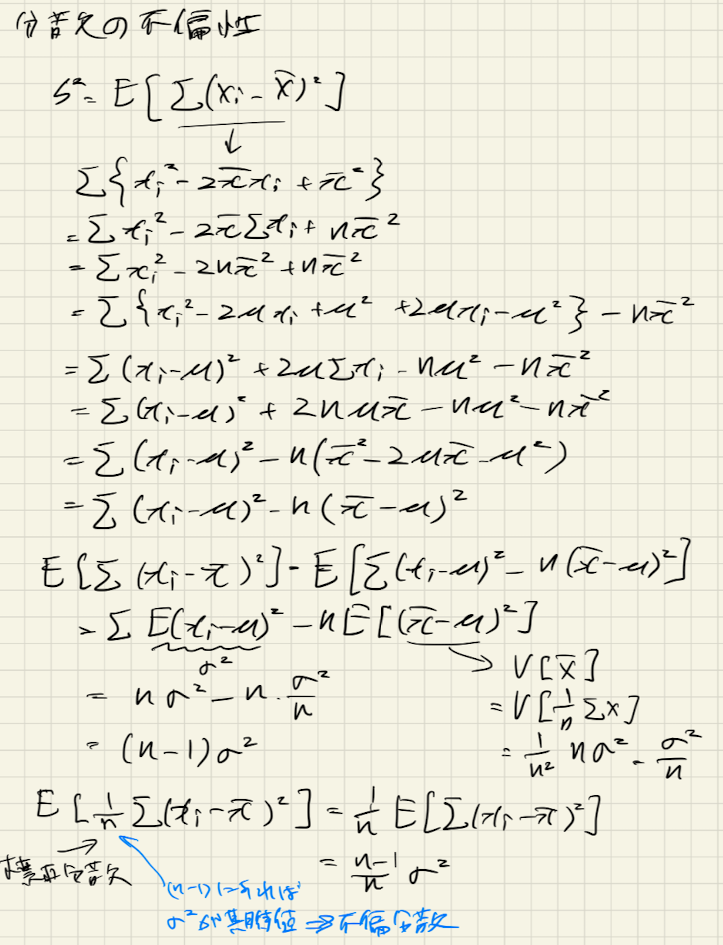 分散の不偏性
S² = E[Σ(xᵢ - x̄)²]
↓
Σ{xᵢ² - 2x̄xᵢ + x̄²}
= Σxᵢ² - 2x̄Σxᵢ + nx̄²
= Σxᵢ² - 2nx̄² + nx̄²
= Σ{xᵢ² - 2μxᵢ + μ² + 2μxᵢ - μ²} - nx̄²
= Σ(xᵢ - μ)² + 2μΣxᵢ - nμ² - nx̄²
= Σ(xᵢ - μ)² + 2nμx̄ - nμ² - nx̄²
= Σ(xᵢ - μ)² - n(x̄² - 2μx̄ - μ²)
= Σ(xᵢ - μ)² - n(x̄ - μ)²
E[Σ(xᵢ - x̄)²] = E[Σ(xᵢ - μ)² - n(x̄ - μ)²]
= ΣE(xᵢ - μ)² - nE[(x̄ - μ)²]
σ²
→ V[x̄]
= nσ² - n・σ²/n
= V[1/n Σx]
= (n-1)σ²
= 1/n² nσ² = σ²/n
E[1/n Σ(xᵢ - x̄)²] = 1/n E[Σ(xᵢ - x̄)²]
標本分散
= n-1/n σ²
(n-1)にすれば
σ²が期待値 ⇒ 不偏分散